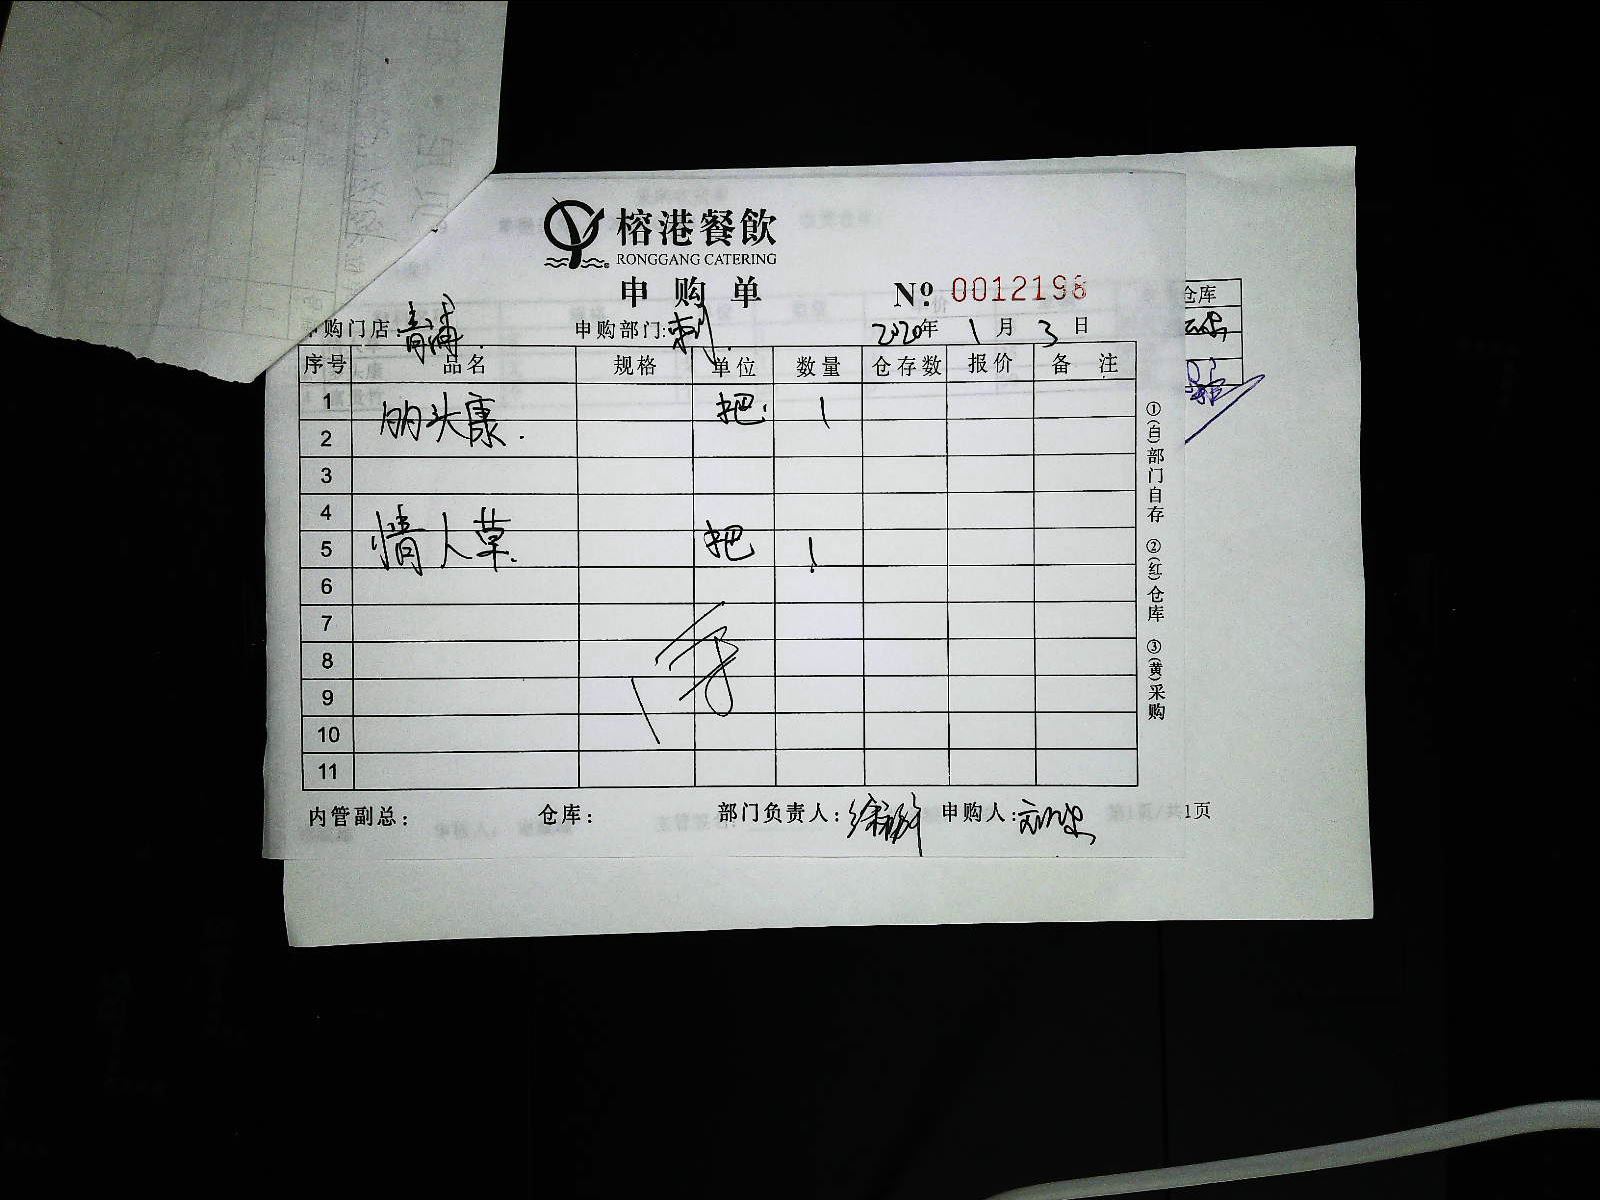 榕港餐飲
RONGGANG CATERING
申购单
Nº: 0012198
申购门店: 青浦
申购部门: 刺
2020年 1月 3日
仓库
序号 品名 规格 单位 数量 仓存数 报价 备注
1 朋头康 把 1
2
3
4
5 情人草 把 1
6
7
8
9
10
11
①(白)部门自存 ②(红)仓库 ③(黄)采购
内管副总: 仓库: 部门负责人: 申购人:
第1页/共1页